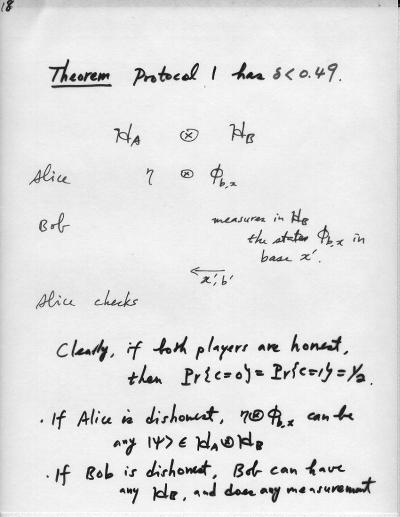 18
Theorem Protocol 1 has δ < 0.49.
H_A ⊗ H_B
Alice η ⊗ Φ_{b,x}
Bob measures in H_B
the state Φ_{b,x} in
base x'.
← x', b'
Alice checks
Clearly, if both players are honest,
then Pr{c=0} = Pr{c=1} = 1/2.
· If Alice is dishonest, η⊗Φ_{b,x} can be
any |Ψ> ∈ H_A ⊗ H_B
· If Bob is dishonest, Bob can have
any H_B, and does any measurement